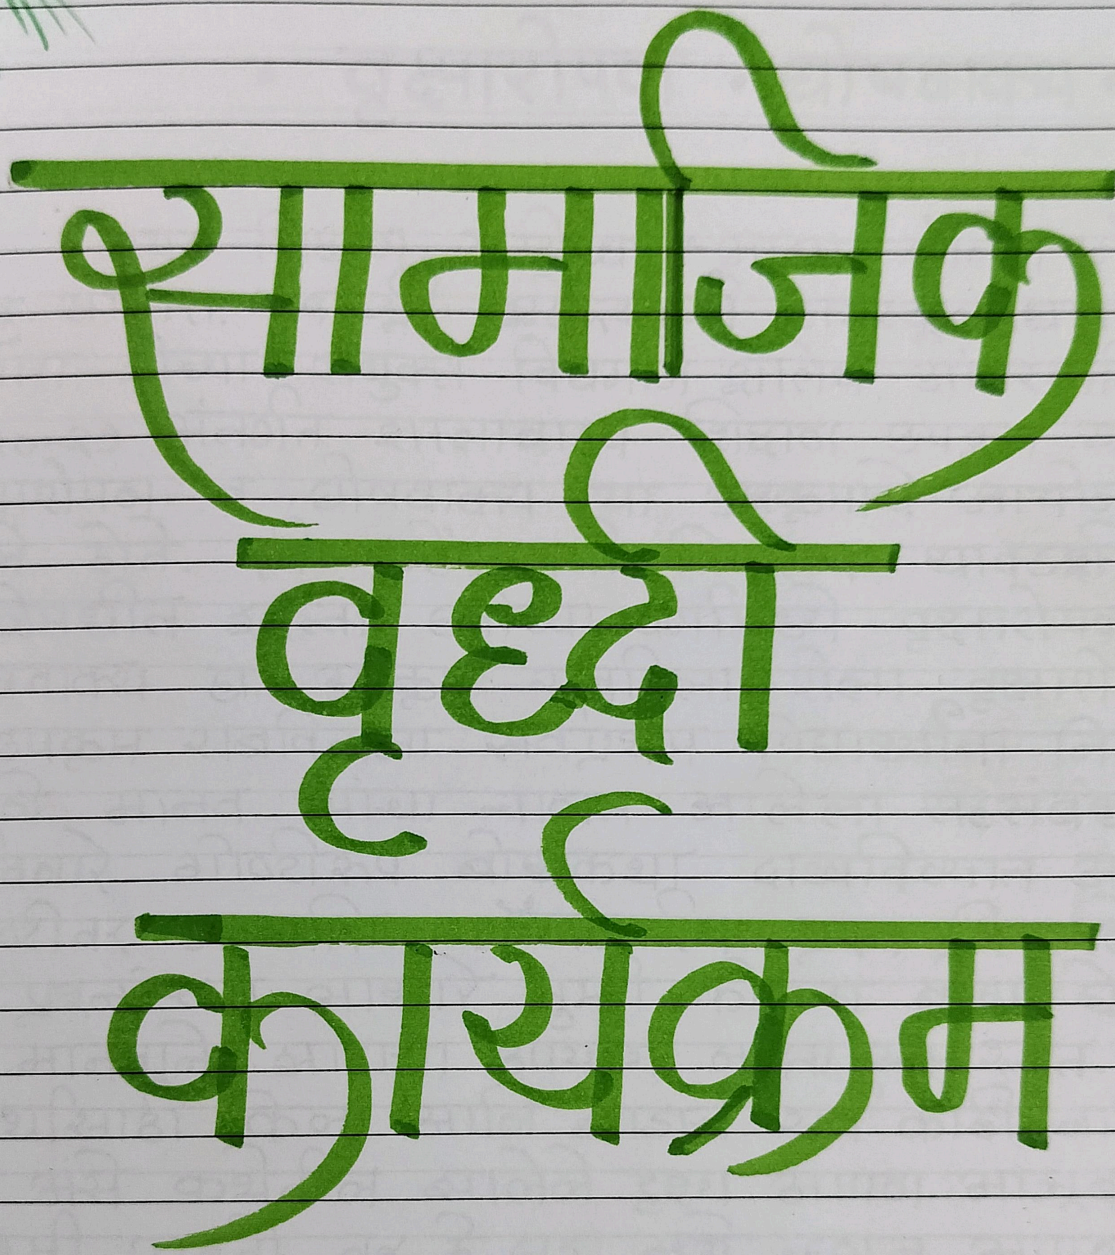 सामाजिक
वृध्दी
कार्यक्रम